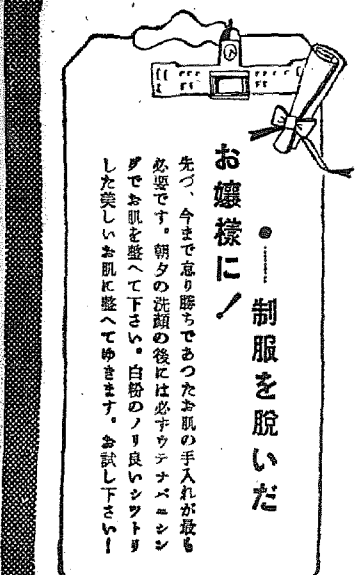 ●……制服を脱いだ
お嬢様に！
先づ、今まで怠り勝ちであつたお肌の手入れが最も
必要です。朝夕の洗顔の後には必ずウテナバニシン
グでお肌を整へて下さい。白粉のノリ良いシツトリ
した美しいお肌に整へてゆきます。お試し下さい！